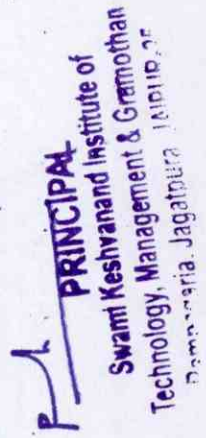 PRINCIPAL
Swami Keshvanand Institute of
Technology, Management & Gramothan
Jagatpura JAIPUR-25